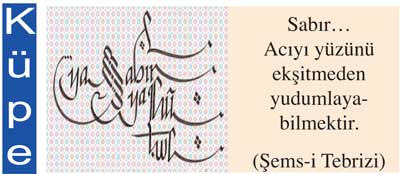 Küpe
Sabır...
Acıyı yüzünü
ekşitmeden
yudumlaya-
bilmektir.
(Şems-i Tebrizi)